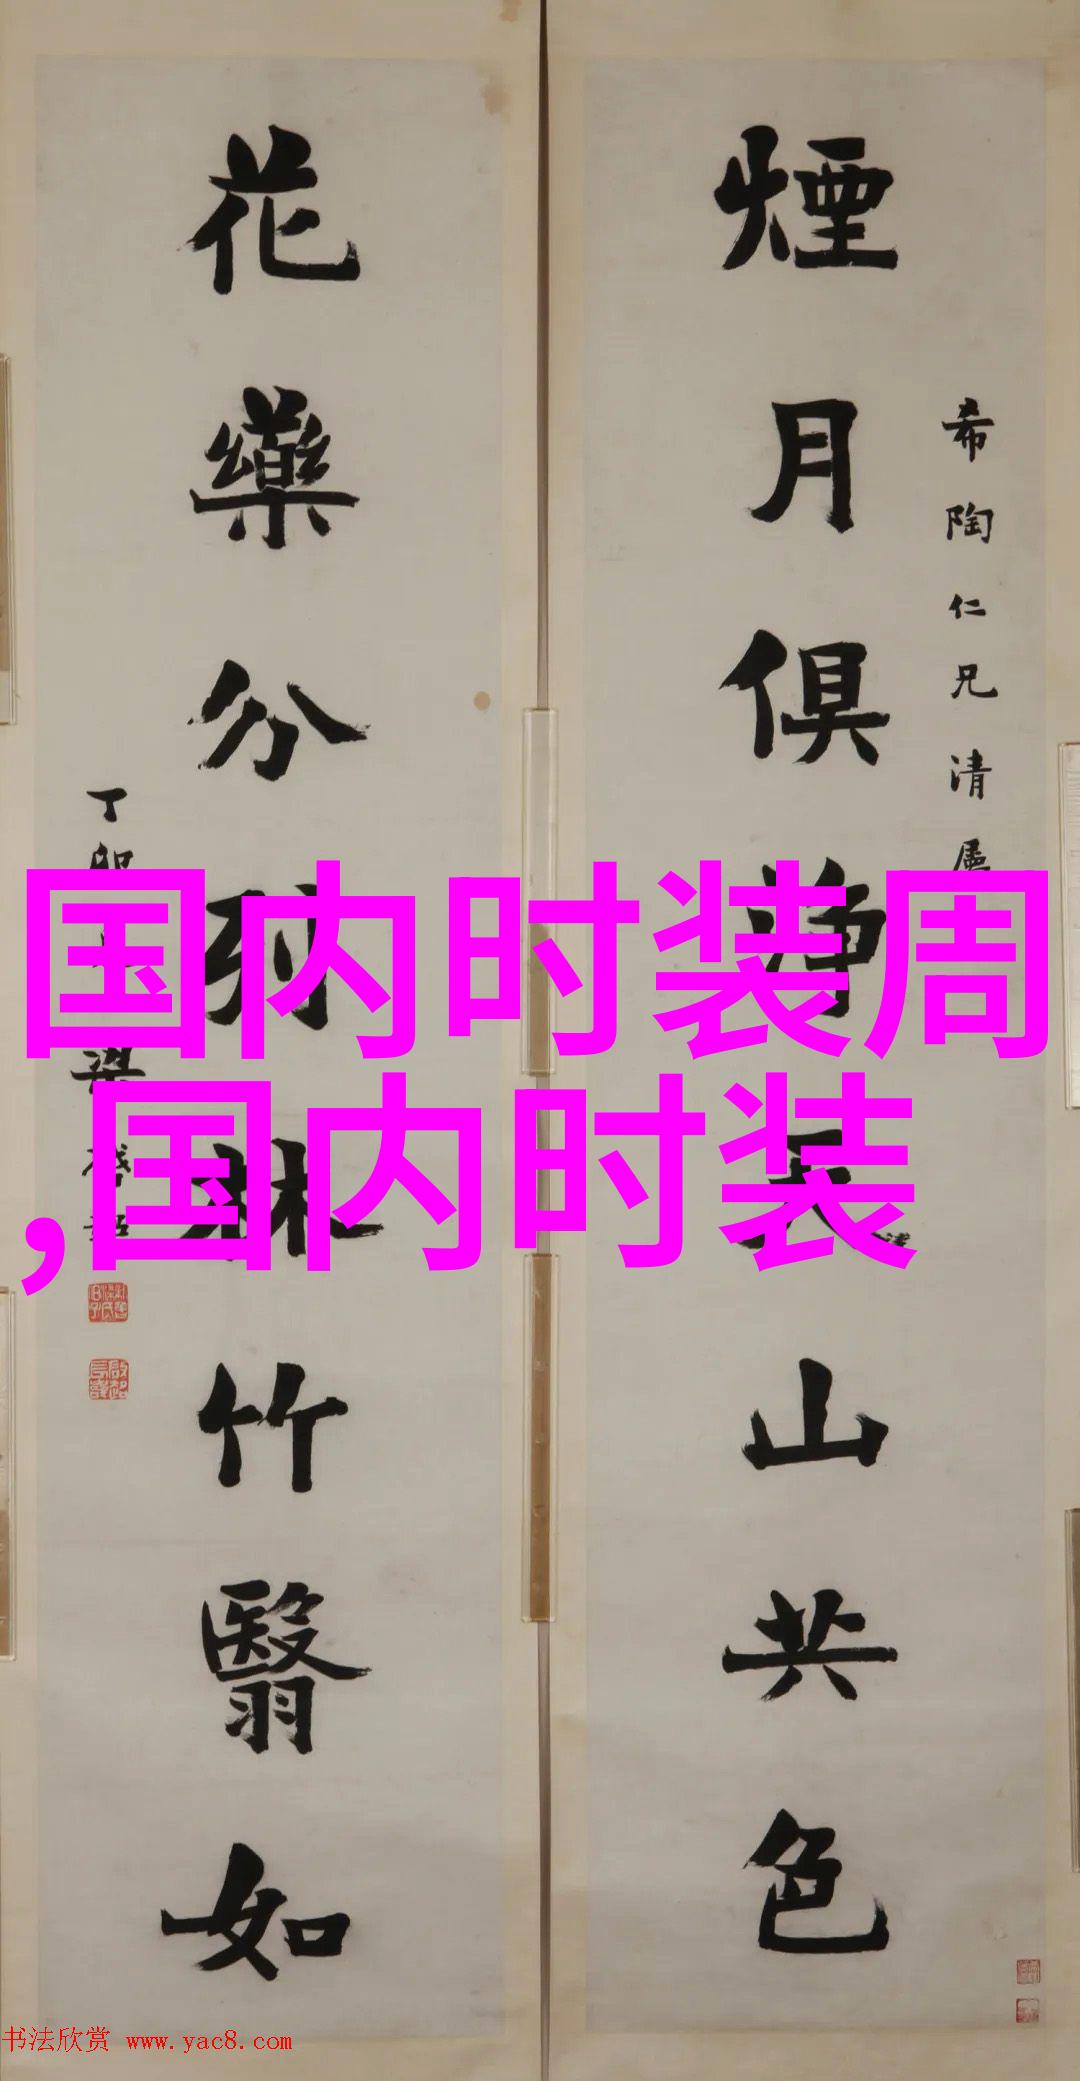 希陶仁兄清屬
煙月俱淨天山共色
花藥分列林竹翳如
丁卯
梁啓超
国内时装周
,国内时装
书法欣赏 www.yac8.com